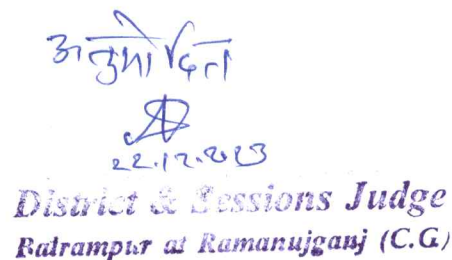 अनुमोदित
22.12.2023
District & Sessions Judge
Balrampur at Ramanujganj (C.G.)